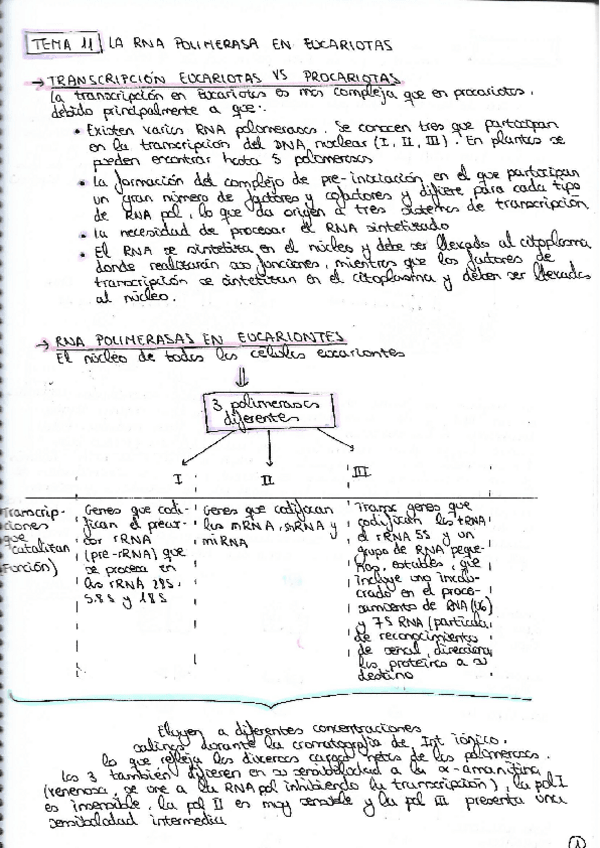 TEMA 11 LA RNA POLIMERASA EN EUCARIOTAS
→ TRANSCRIPCIÓN EUCARIOTAS VS PROCARIOTAS
La transcripción en Eucariotas es más compleja que en procariotas,
debido principalmente a que:
• Existen varias RNA polimerasas. Se conocen tres que participan
en la transcripción del DNA nuclear (I, II, III). En plantas se
pueden encontrar hasta 5 polimerasas
• La formación del complejo de pre-iniciación en el que participan
un gran número de factores y cofactores y difiere para cada tipo
de RNA pol, lo que da origen a tres sistemas de transcripción
• La necesidad de procesar el RNA sintetizado
• El RNA se sintetiza en el núcleo y debe ser llevado al citoplasma
donde realizarán sus funciones, mientras que los factores de
transcripción se sintetizan en el citoplasma y deben ser llevados
al núcleo.
→ RNA POLIMERASAS EN EUCARIONTES
El núcleo de todas las células eucariontes
⇓
3 polimerasas
diferentes
I II III
Transcrip-
ciones
que
catalizan
Función)
Genes que codi-
fican el precur-
sor rRNA
(pre-rRNA) que
se procesa en
las rRNA 28S,
5.8S y 18S
Genes que codifican
los mRNA, snRNA y
miRNA
Transc genes que
codifican los tRNA,
el rRNA 5S y un
grupo de RNA peque-
ños, estables, que
incluye uno involu-
crado en el proce-
samiento de RNA (U6)
y 7S RNA (partícula
de reconocimiento
de señal, direcciona
las proteínas a su
destino
Eluyen a diferentes concentraciones
salinas durante la cromatografía de Int iónico,
lo que refleja las diversas cargas netas de las polimerasas.
Las 3 también difieren en su sensibilidad a la α-amanitina
(venenosa, se une a la RNA pol inhibiendo la transcripción), la pol I
es insensible, la pol II es muy sensible y la pol III presenta una
sensibilidad intermedia
1